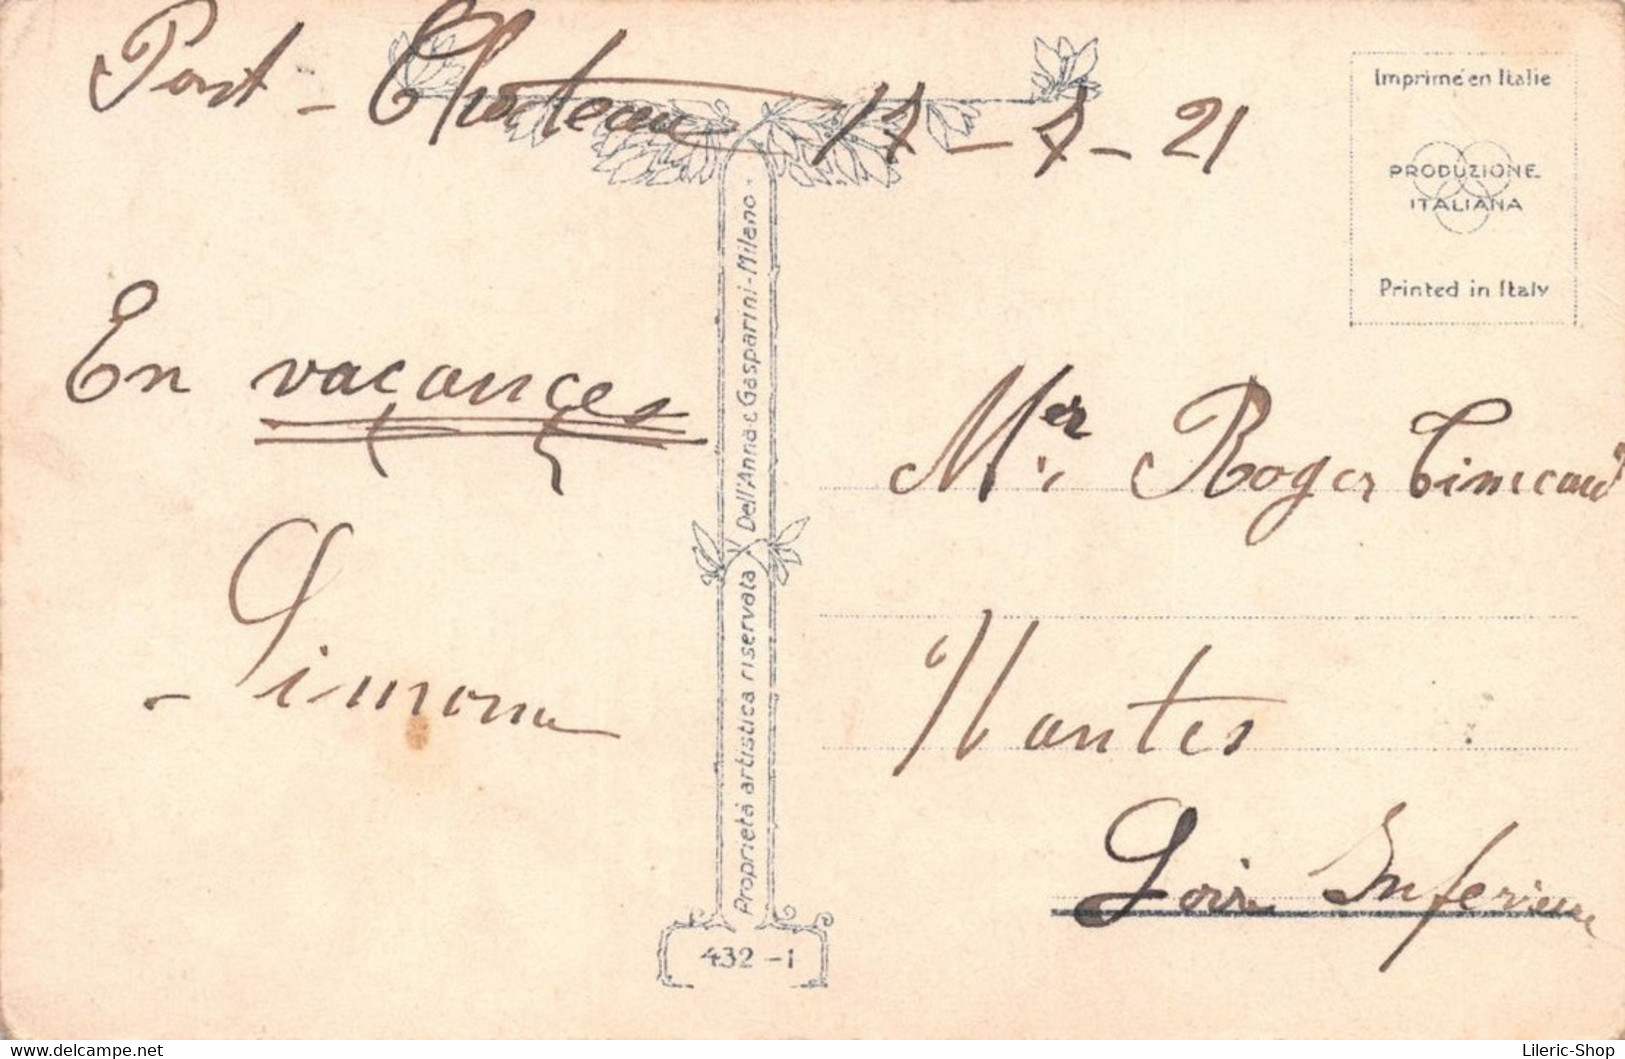 Pont-Chateau 17-7-21
En vacances
- Simone
Imprimé en Italie
PRODUZIONE
ITALIANA
Printed in Italy
Proprietà artistica riservata Dell'Anna e Gasparini - Milano -
432-1
Mr Roger
Nantes
Loire Inferieure
Lileric-Shop
https://www.delcampe.net